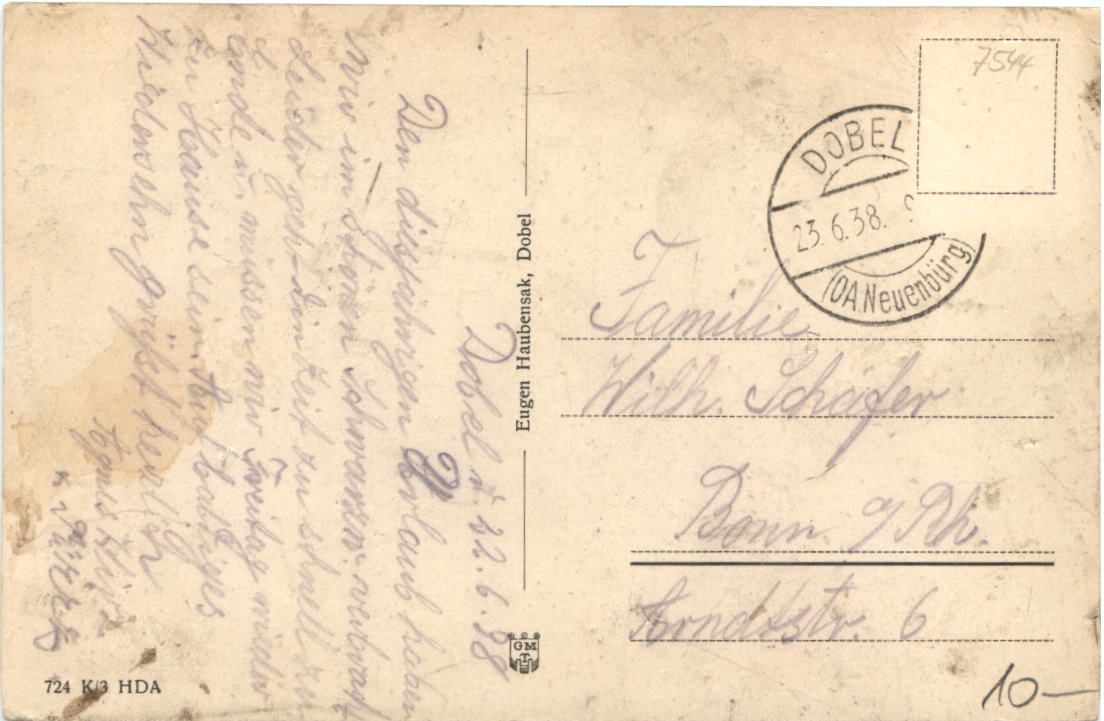 Dobel d. 22.6.38
Den diesjährigen Urlaub haben
wir im schönen Schwarzw. verbracht
Leider geht die Zeit zu schnell zu
Ende u. müssen wir Freitag wieder
zu Hause sein. Auf baldiges
Wiedersehn grüßt herzlich
Eugen Haubensak, Dobel
GMT
724 K/3 HDA
7544
DOBEL
23.6.38. 9
(OA.Neuenbürg)
Familie
Wilh. Schäfer
Bonn a/Rh.
Arndtstr. 6
10—